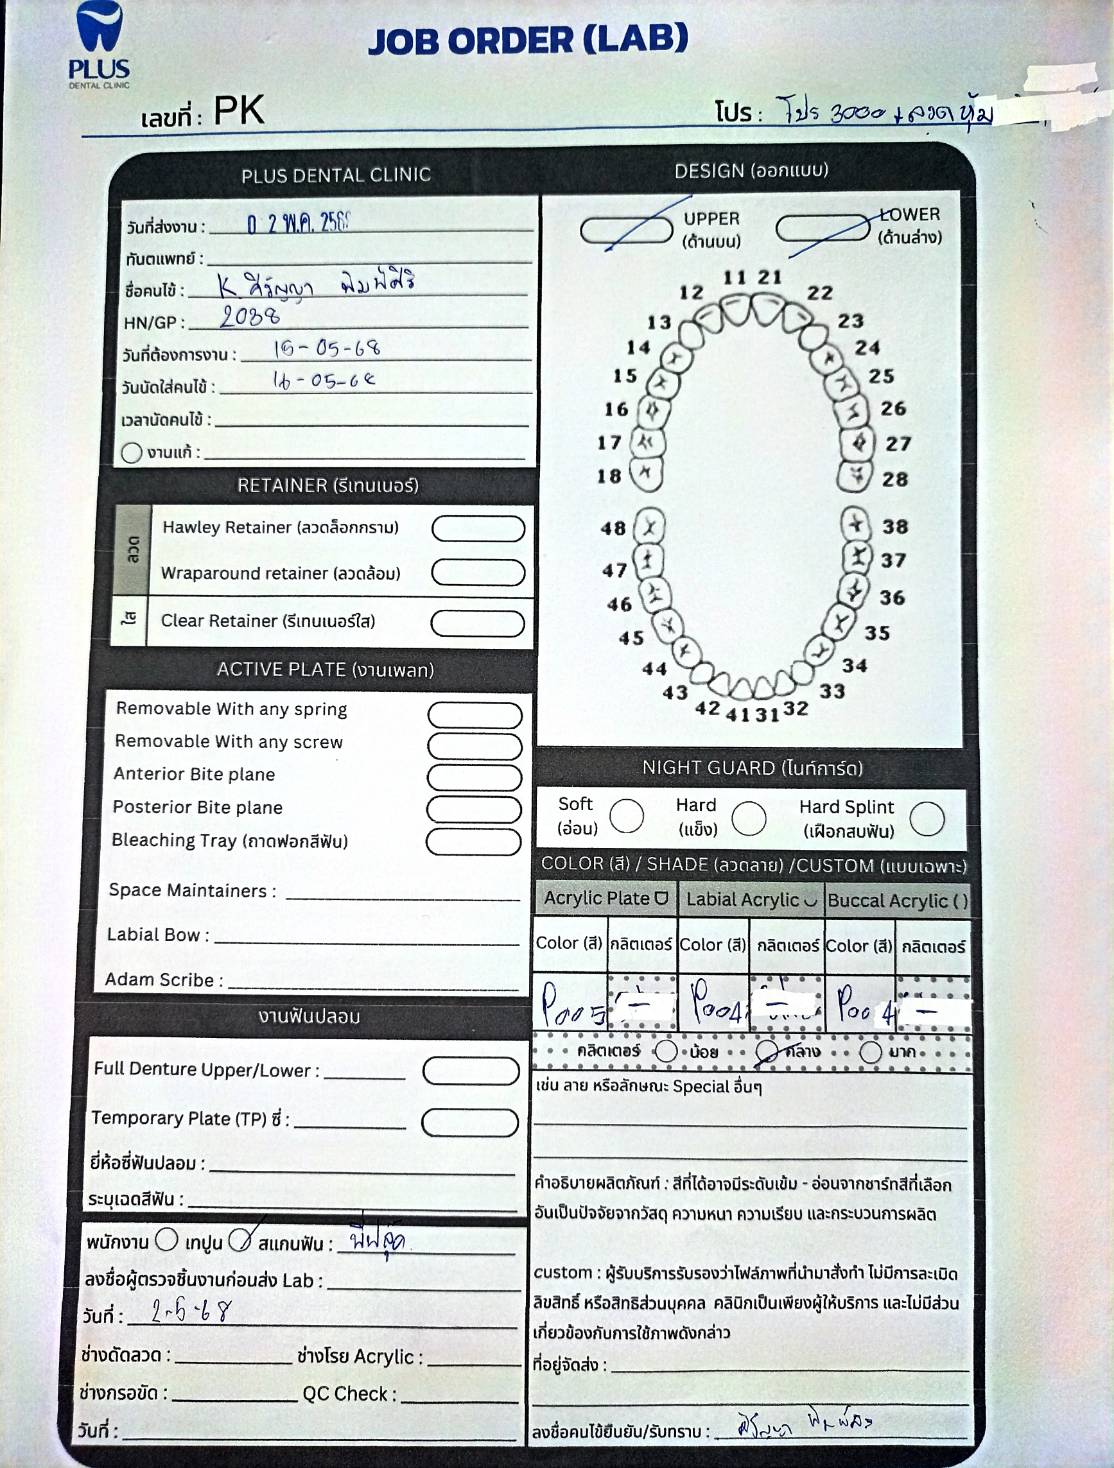 PLUS
DENTAL CLINIC
JOB ORDER (LAB)
เลขที่ : PK
โปร : โปร 3000 + ลวดหุ้ม
PLUS DENTAL CLINIC
วันที่ส่งงาน : 0 2 พ.ค. 256
ทันตแพทย์ :
ชื่อคนไข้ : K ศิริญญา พิมพ์ศิริ
HN/GP : 2038
วันที่ต้องการงาน : 15-05-68
วันนัดใส่คนไข้ : 16-05-68
เวลานัดคนไข้ :
งานแก้ :
RETAINER (รีเทนเนอร์)
ลวด
Hawley Retainer (ลวดล็อกกราม)
Wraparound retainer (ลวดล้อม)
ใส
Clear Retainer (รีเทนเนอร์ใส)
ACTIVE PLATE (งานเพลท)
Removable With any spring
Removable With any screw
Anterior Bite plane
Posterior Bite plane
Bleaching Tray (ถาดฟอกสีฟัน)
Space Maintainers :
Labial Bow :
Adam Scribe :
งานฟันปลอม
Full Denture Upper/Lower :
Temporary Plate (TP) ซี่ :
ยี่ห้อซี่ฟันปลอม :
ระบุเฉดสีฟัน :
พนักงาน เทปูน สแกนฟัน :
ลงชื่อผู้ตรวจชิ้นงานก่อนส่ง Lab :
วันที่ : 2-5-68
ช่างดัดลวด : ช่างโรย Acrylic :
ช่างกรอขัด : QC Check :
วันที่ :
DESIGN (ออกแบบ)
UPPER (ด้านบน)
LOWER (ด้านล่าง)
11 21
12 22
13 23
14 24
15 25
16 26
17 27
18 28
48 38
47 37
46 36
45 35
44 34
43 33
42 41 31 32
NIGHT GUARD (ไนท์การ์ด)
Soft (อ่อน) Hard (แข็ง) Hard Splint (เฝือกสบฟัน)
COLOR (สี) / SHADE (ลวดลาย) /CUSTOM (แบบเฉพาะ)
Acrylic Plate Labial Acrylic Buccal Acrylic ( )
Color (สี) กลิตเตอร์ Color (สี) กลิตเตอร์ Color (สี) กลิตเตอร์
P005 - P004 - P004 -
กลิตเตอร์ น้อย กลาง มาก
เช่น ลาย หรือลักษณะ Special อื่นๆ
คำอธิบายผลิตภัณฑ์ : สีที่ได้อาจมีระดับเข้ม - อ่อนจากชาร์ทสีที่เลือก
อันเป็นปัจจัยจากวัสดุ ความหนา ความเรียบ และกระบวนการผลิต
custom : ผู้รับบริการรับรองว่าไฟล์ภาพที่นำมาสั่งทำ ไม่มีการละเมิด
ลิขสิทธิ์ หรือสิทธิส่วนบุคคล คลินิกเป็นเพียงผู้ให้บริการ และไม่มีส่วน
เกี่ยวข้องกับการใช้ภาพดังกล่าว
ที่อยู่จัดส่ง :
ลงชื่อคนไข้ยืนยัน/รับทราบ :